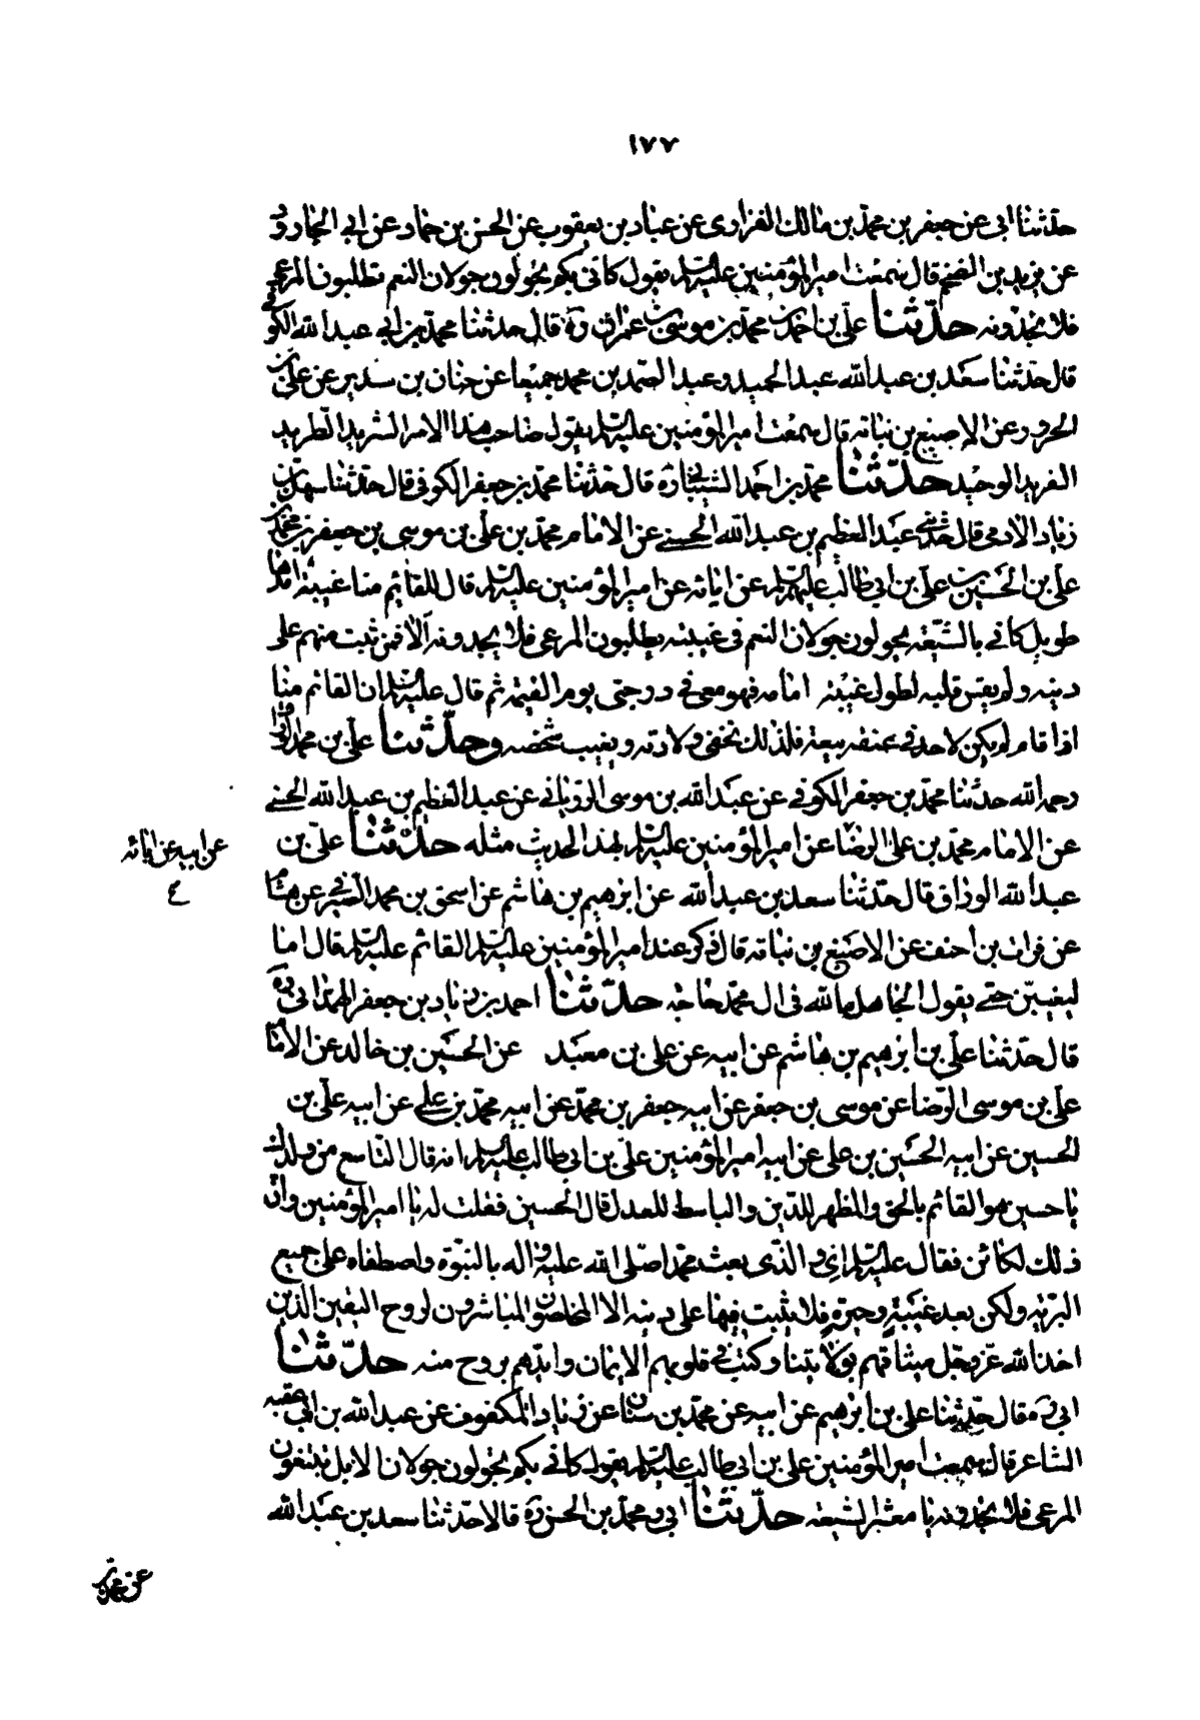 ١٧٧
حدثنا ابى عن جعفر بن محمد بن مالك الفزارى عن عباد بن يعقوب عن الحسن بن حماد عن ابى الجارود
عن يزيد بن الضخم قال سمعت امير المؤمنين عليه السلام يقول كانى بكم تجولون جولان النعم تطلبون المرعى
فلا تجدونه حدّثنا على بن احمد بن محمد بن موسى بن عمران ره قال حدثنا محمد بن ابى عبد الله الكوفى
قال حدثنا سعد بن عبد الله عبد الحميد وعبد الصمد بن محمد جميعا عن حنان بن سدير عن على بن
الحزور عن الاصبغ بن نباته قال سمعت امير المؤمنين عليه السلام يقول صاحب هذا الامر الشريد الطريد
الفريد الوحيد حدّثنا محمد بن احمد الشيبانى ره قال حدثنا محمد بن جعفر الكوفى قال حدثنا سهل بن
زياد الادمى قال حدثنى عبد العظيم بن عبد الله الحسنى عن الامام محمد بن على بن موسى بن جعفر بن محمد بن
على بن الحسين بن على بن ابى طالب عليهم السلام عن ابائه عن امير المؤمنين عليه السلام قال للقائم منا غيبة امدها
طويل كانى بالشيعة يجولون جولان النعم فى غيبته يطلبون المرعى فلا يجدونه ألا فمن ثبت منهم على
دينه ولم يقس قلبه لطول غيبته امامه فهو معى فى درجتى يوم القيمة ثم قال عليه السلام ان القائم منا
اذا قام لم يكن لاحد فى عنقه بيعة فلذلك تخفى ولادته ويغيب شخصه وحدّثنا على بن محمد الدقاق
رحمه الله حدثنا محمد بن جعفر الكوفى عن عبد الله بن موسى الرويانى عن عبد العظيم بن عبد الله الحسنى
عن الامام محمد بن على الرضا عن امير المؤمنين عليه السلام بهذا الحديث مثله حدّثنا على بن
عن ابيه عن ابائه
ع
عبد الله الوراق قال حدثنا سعد بن عبد الله عن ابرهيم بن هاشم عن اسحق بن محمد الصيرفى عن هشام
عن فرات بن احنف عن الاصبغ بن نباته قال ذكر عند امير المؤمنين عليه السلام القائم عليه السلام فقال اما
ليغيبن حتى يقول الجاهل ما لله فى ال محمد حاجة حدّثنا احمد بن زياد بن جعفر الهمدانى ره
قال حدثنا على بن ابرهيم بن هاشم عن ابيه عن على بن معبد عن الحسين بن خالد عن الامام
على بن موسى الرضا عن موسى بن جعفر عن ابيه جعفر بن محمد عن ابيه محمد بن على عن ابيه على بن
الحسين عن ابيه الحسين بن على عن ابيه امير المؤمنين على بن ابى طالب عليه السلام انه قال التاسع من ولدك
يا حسين هو القائم بالحق والمظهر للدين والباسط للعدل قال الحسين فقلت له يا امير المؤمنين وان
ذلك لكائن فقال عليه السلام اى والذى بعث محمدا صلى الله عليه واله بالنبوة واصطفاه على جميع
البرية ولكن بعد غيبة وحيرة فلا يثبت فيها على دينه الا المخلصون المباشرون لروح اليقين الذين
اخذ الله عز وجل ميثاقهم بولايتنا وكتب فى قلوبهم الايمان وايدهم بروح منه حدّثنا
ابى ره قال حدثنا على بن ابرهيم عن ابيه عن محمد بن سنان عن زياد المكفوف عن عبد الله بن ابى عقبة
الشاعر قال سمعت امير المؤمنين على بن ابى طالب عليه السلام يقول كانى بكم تجولون جولان الابل تبتغون
المرعى فلا تجدونه يا معشر الشيعة حدّثنا ابى ومحمد بن الحسن ره قالا حدثنا سعد بن عبد الله
عن محمد بن